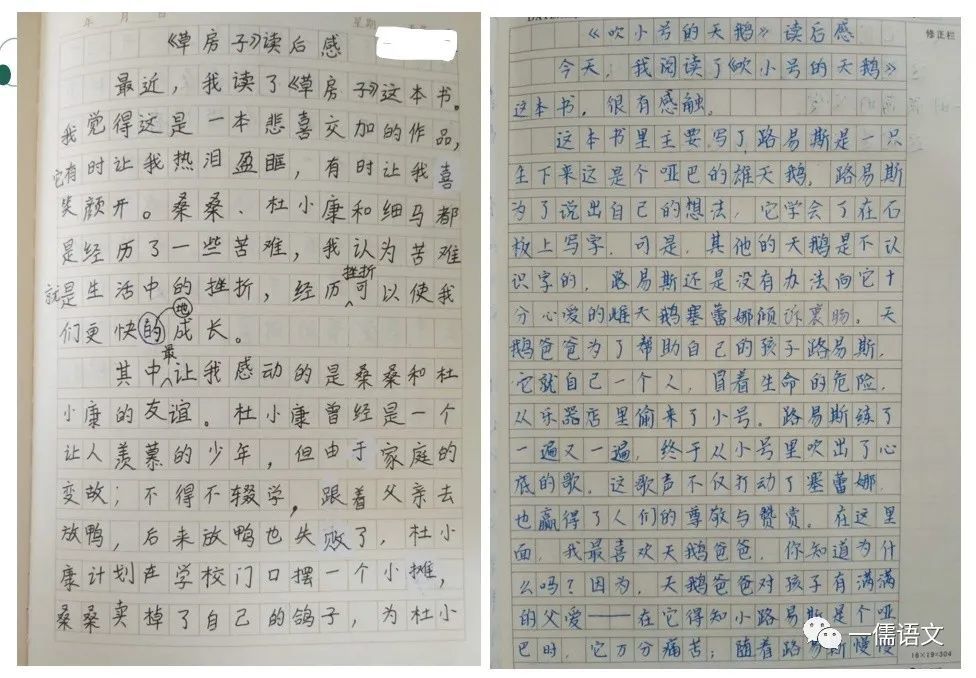 年 月 日
星期
《草房子》读后感
最近，我读了《草房子》这本书。
我觉得这是一本悲喜交加的作品，
它有时让我热泪盈眶，有时让我喜
笑颜开。桑桑、杜小康和细马都
是经历了一些苦难，我认为苦难
就是生活中的挫折，经历挫折可以使我
们更快地的成长。
其中最让我感动的是桑桑和杜
小康的友谊。杜小康曾经是一个
让人羡慕的少年，但由于家庭的
变故；不得不辍学，跟着父亲去
放鸭，后来放鸭也失败了，杜小
康计划在学校门口摆一个小摊，
桑桑卖掉了自己的鸽子，为杜小
《吹小号的天鹅》读后感
修正栏
今天，我阅读了《吹小号的天鹅》
这本书，很有感触。
这本书里主要写了路易斯是一只
生下来这是个哑巴的雄天鹅，路易斯
为了说出自己的想法，它学会了在石
板上写字，可是，其他的天鹅是不认
识字的，路易斯还是没有办法向它十
分心爱的雌天鹅塞蕾娜倾诉衷肠。天
鹅爸爸为了帮助自己的孩子路易斯，
它就自己一个人，冒着生命的危险，
从乐器店里偷来了小号。路易斯练了
一遍又一遍，终于从小号里吹出了心
底的歌。这歌声不仅打动了塞蕾娜
也赢得了人们的尊敬与赞赏。在这里
面，我最喜欢天鹅爸爸，你知道为什
么吗？因为，天鹅爸爸对孩子有满满
的父爱——在它得知小路易斯是个哑
巴时，它万分痛苦；随着路易斯慢慢
一儒语文
16×19=304